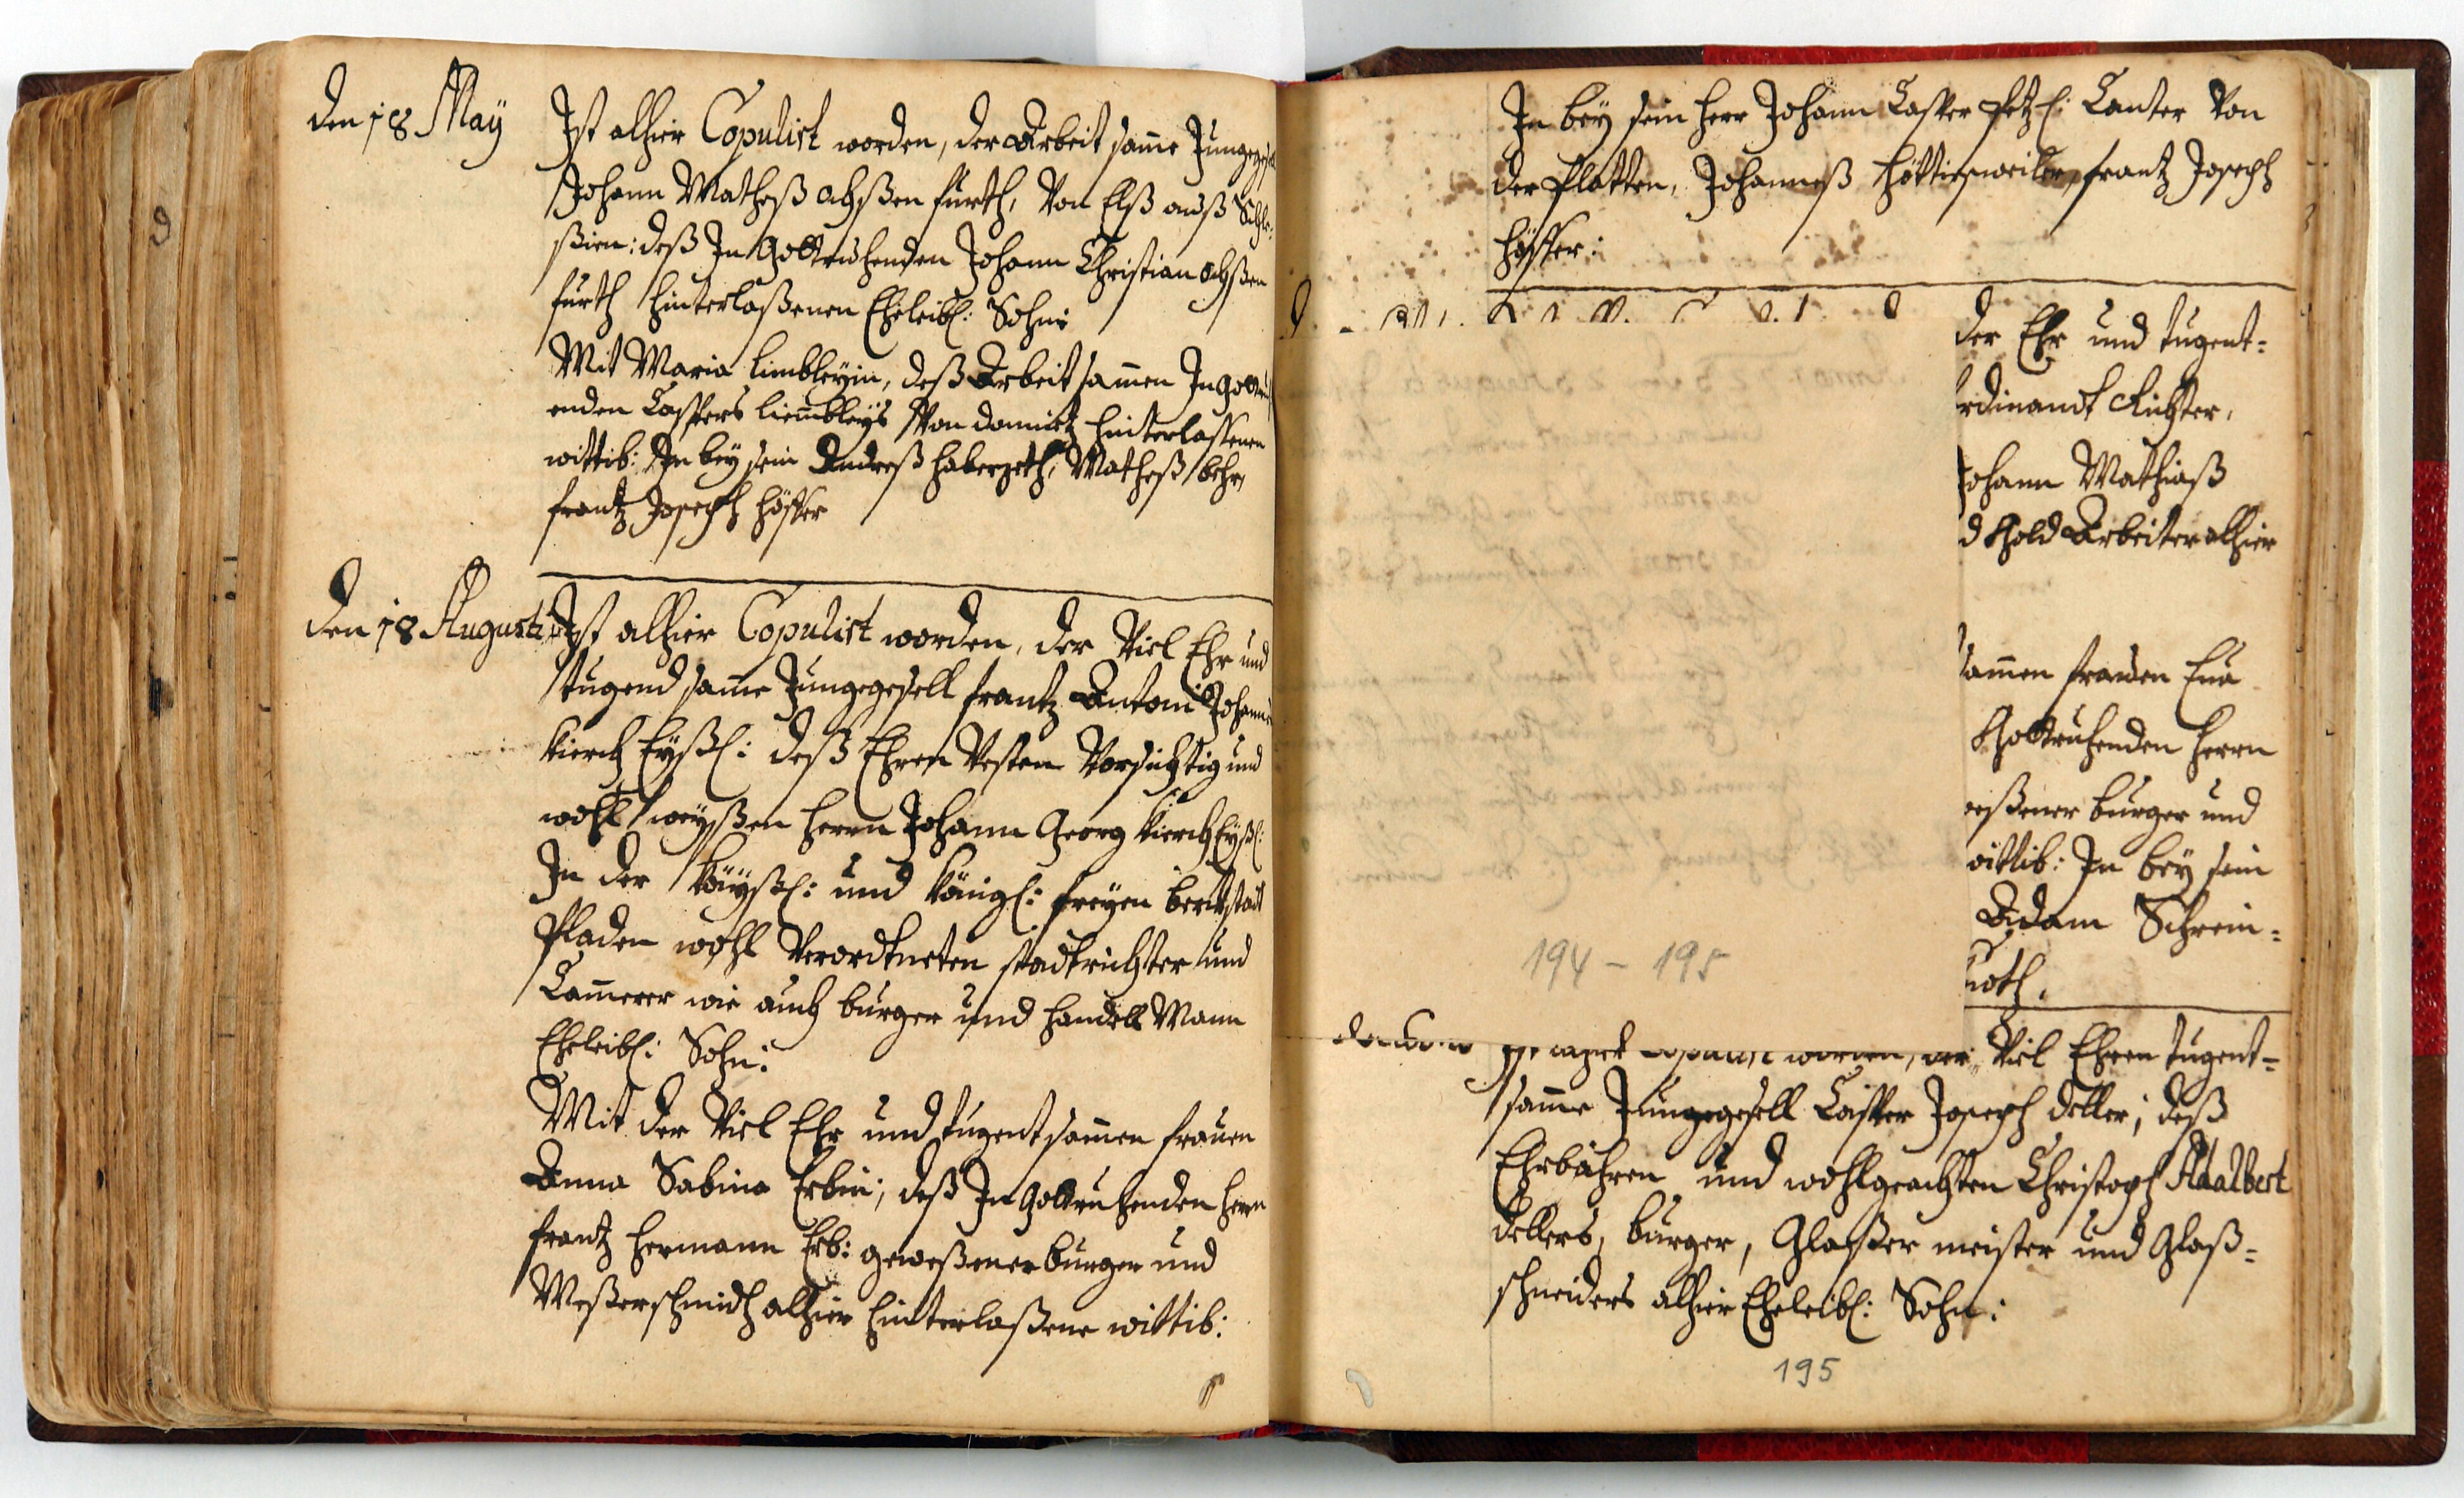 Den 18 May
Ist alhier Copulirt worden, der Arbeitsame Jungeges
Johann Matheß Ochßenfurth, Von Elß auß Schle:
ßien: deß In Gottruhenden Johann Christian Ochßen
furth hinterlaßenen Eheleibl: Sohn:
Mit Maria limbleyin, deß Arbeitsammen In Gottru
enden Caspers liembleÿs Von hinterlassenen
wittib: In beÿ sein Andreß Matheß behr,
frantz Joseph Höffer
Den 18 Augusti
Ist alhier Copulirt worden, der Viel Ehr und
tugendsame Jungegesell frantz Antoni Johann
Kirch Eÿßl: deß Ehren Vesten Vorsichtig und
wohl weyßen Herrn Johann Georg Kirch Eyßl:
In der Käyßl: und Königl: freÿen berckstadt
Pladen wohl Verordtneten stadtrichter und
Cammerer wie auch burger und handels Mann
Eheleibl: Sohn:
Mit der Viel Ehr und tugentsammen frauen
Anna Sabina Erbin; deß In Gottruhenden herrn
frantz Hermann Erb: geweßener burger und
Meßerschmidt alhier hinterlaßene wittib:
In beÿ sein herr Johann Casper Canter Von
der Platten, Johanneß frantz Joseph
Höffer:
der Ehr und tugent-
rdinandt Richter,
Johann Mathiaß
d Gold Arbeiter alhier
sammen frauen Eva
Gottruhenden herrn
weßener burger und
wittib: In beÿ sein
Adam Schrein-
194 - 195
Ist Copulirt worden, der Viel Ehren tugent-
samme Jungegesell Casper Joseph deller; deß
Ehrbahren und wohlgeachten Christoph Adalbert
dellers, burger, Glaßer meister und Glaß-
schneiders alhier Eheleibl: Sohn:
195